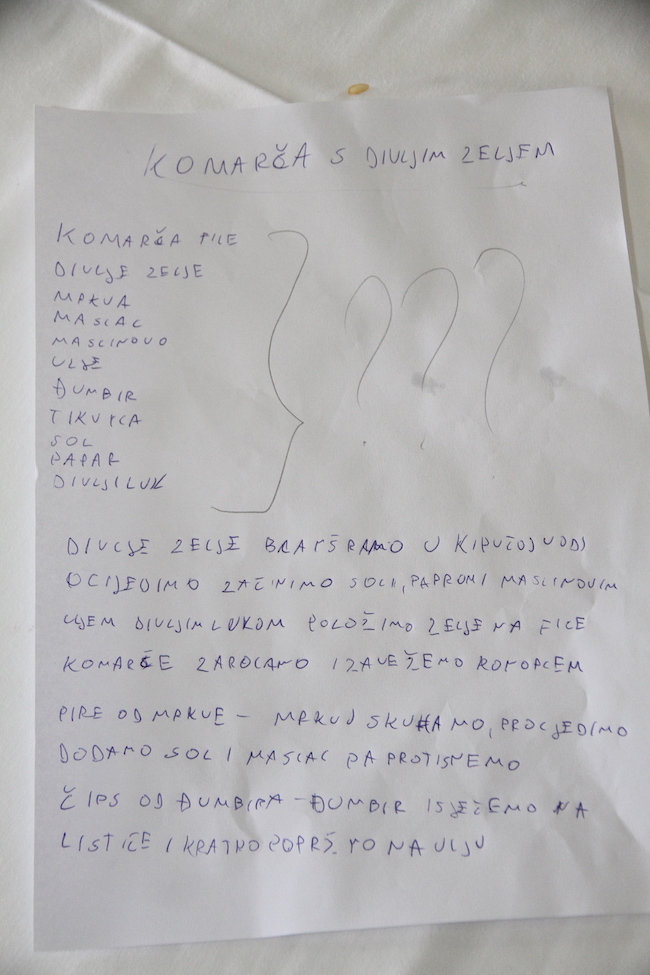 KOMARČA S DIVLJIM ZELJEM
KOMARČA FILE
DIVLJE ZELJE
MRKVA
MASLAC
MASLINOVO
ULJE
ĐUMBIR
TIKVICA
SOL
PAPAR
DIVLJI LUK
???
DIVLJE ZELJE BLANŠIRAMO U KIPUĆOJ VODI
OCIJEDIMO ZAČINIMO SOLI, PAPROM I MASLINOVIM
ULJEM DIVLJIM LUKOM POLOŽIMO ZELJE NA FILE
KOMARČE ZAROLAMO I ZAVEŽEMO KONOPCEM
PIRE OD MRKVE - MRKVU SKUHAMO, PROCJEDIMO
DODAMO SOL I MASLAC PA PROTISNEMO
ČIPS OD ĐUMBIRA - ĐUMBIR ISJEČEMO NA
LISTIĆE I KRATKO POPRŽ. NA ULJU